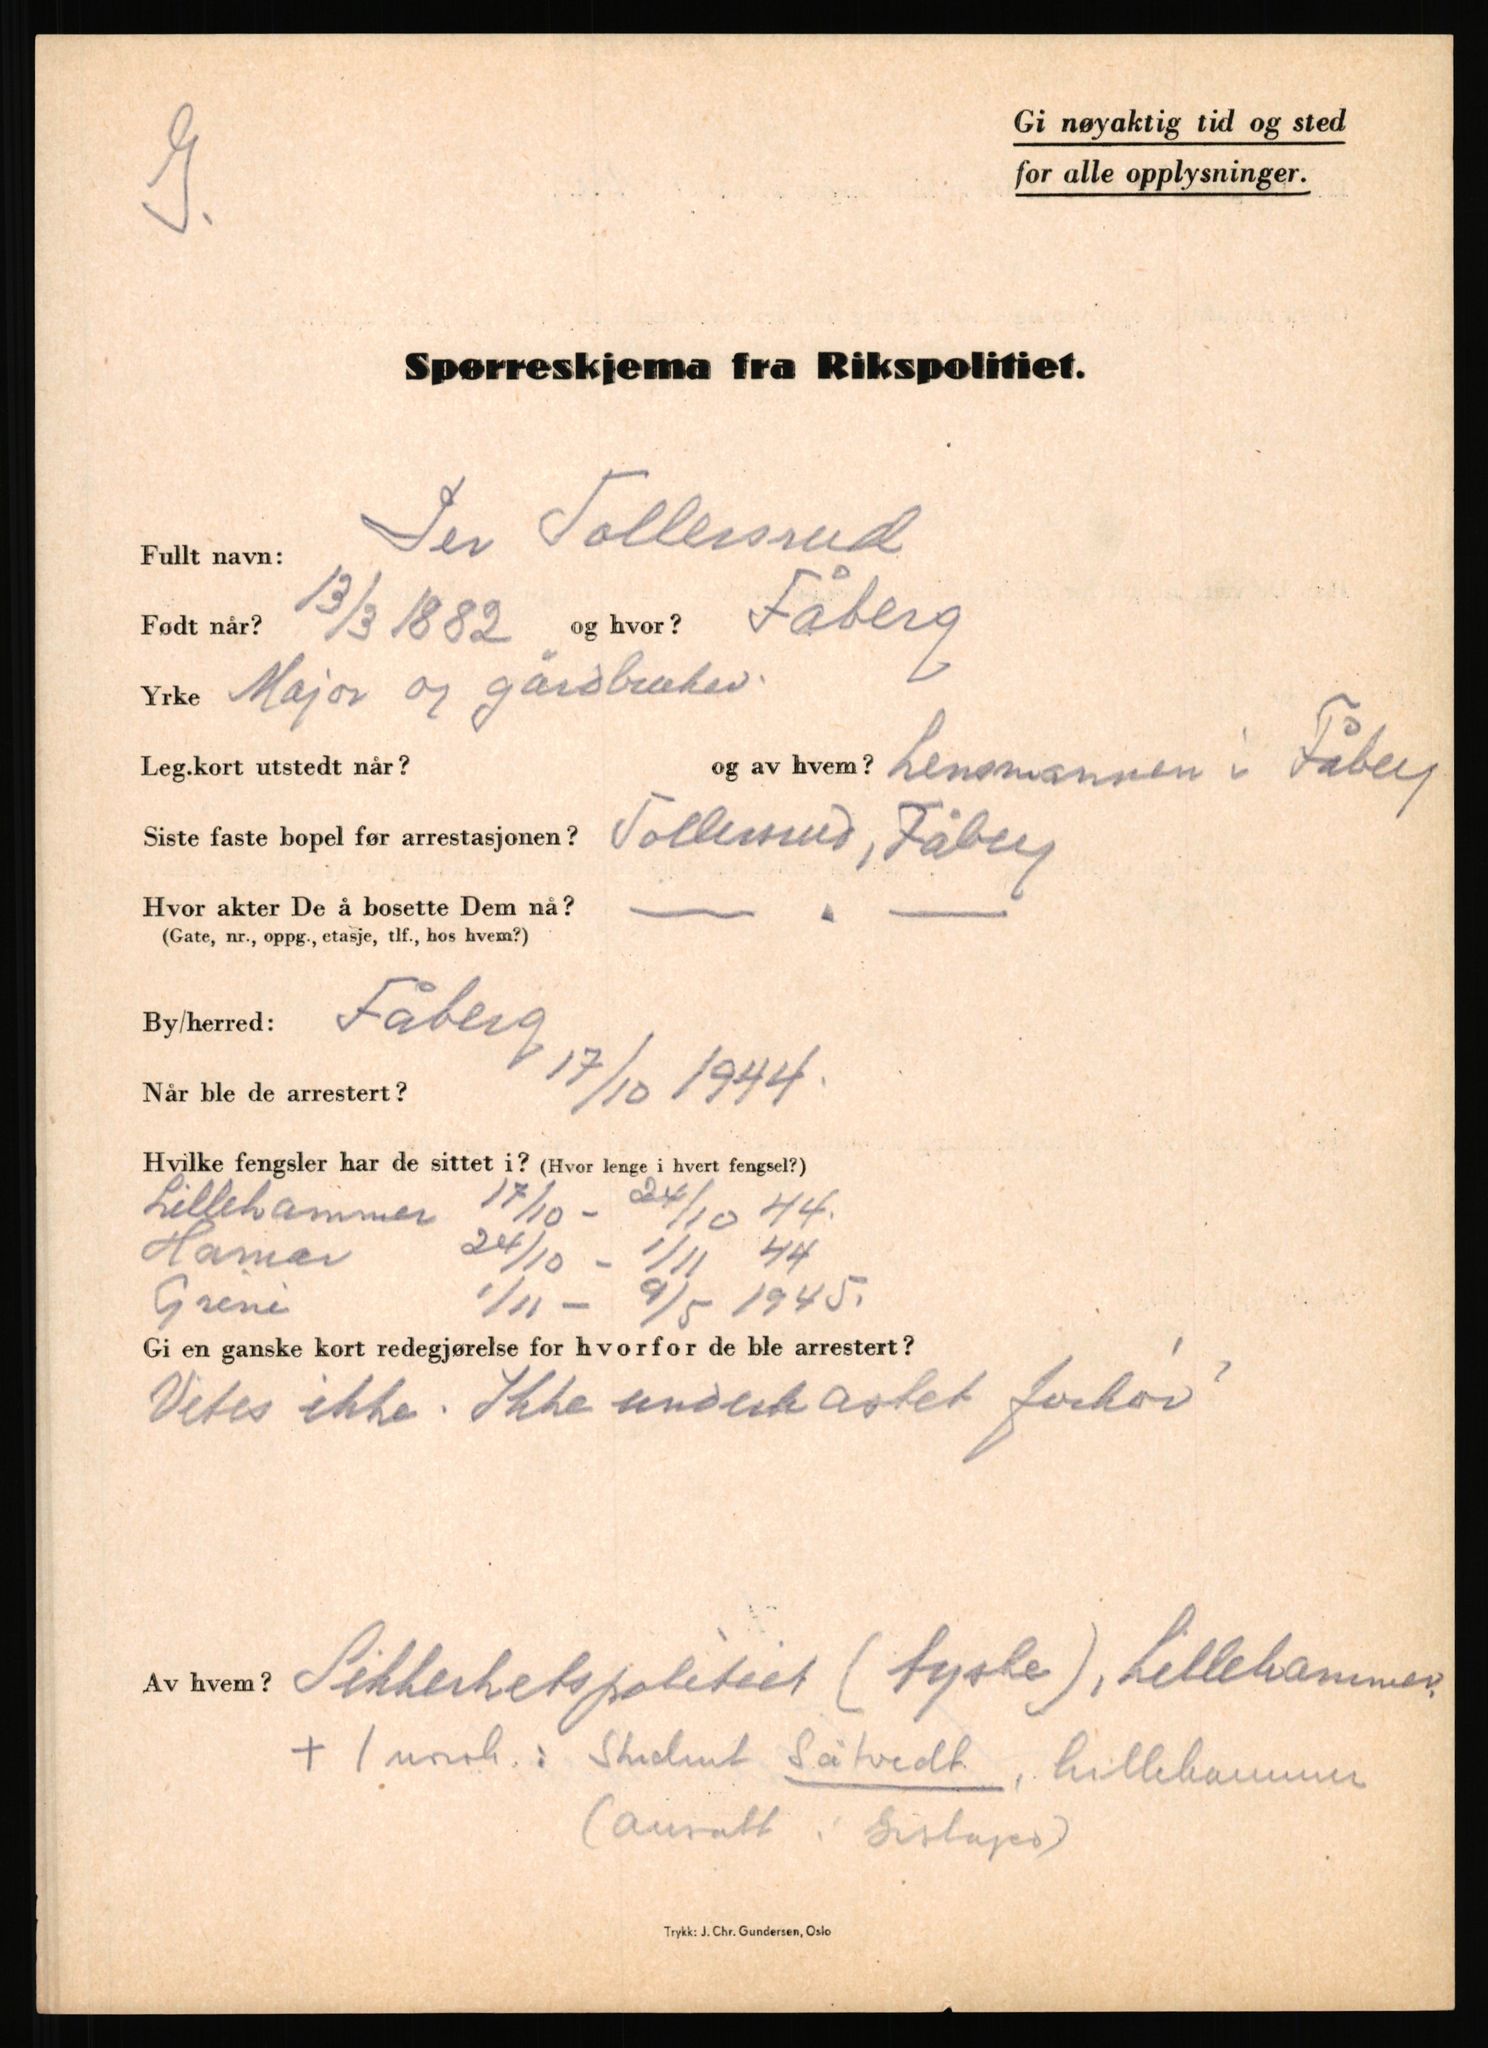 G.
Gi nøyaktig tid og sted
for alle opplysninger.
Spørreskjema fra Rikspolitiet.
Fullt navn: Iver Tollersrud
Født når? 13/3 1882 og hvor? Fåberg
Yrke Major og gårdbruker.
Leg.kort utstedt når? og av hvem? Lensmannen i Fåberg
Siste faste bopel før arrestasjonen? Tollersrud, Fåberg
Hvor akter De å bosette Dem nå? — " —
(Gate, nr., oppg., etasje, tlf., hos hvem?)
By/herred: Fåberg
Når ble de arrestert? 17/10 1944.
Hvilke fengsler har de sittet i? (Hvor lenge i hvert fengsel?)
Lillehammer 17/10 - 24/10 44.
Hamar 24/10 - 1/11 44
Grini 1/11 - 9/5 1945.
Gi en ganske kort redegjørelse for hvorfor de ble arrestert?
Vites ikke. Ikke underkastet forhør
Av hvem? Sikkerhetspolitiet (tyske), Lillehammer.
+ 1 norsk: Student Såtvedt, Lillehammer
(ansatt i Gestapo)
Trykk: J. Chr. Gundersen, Oslo